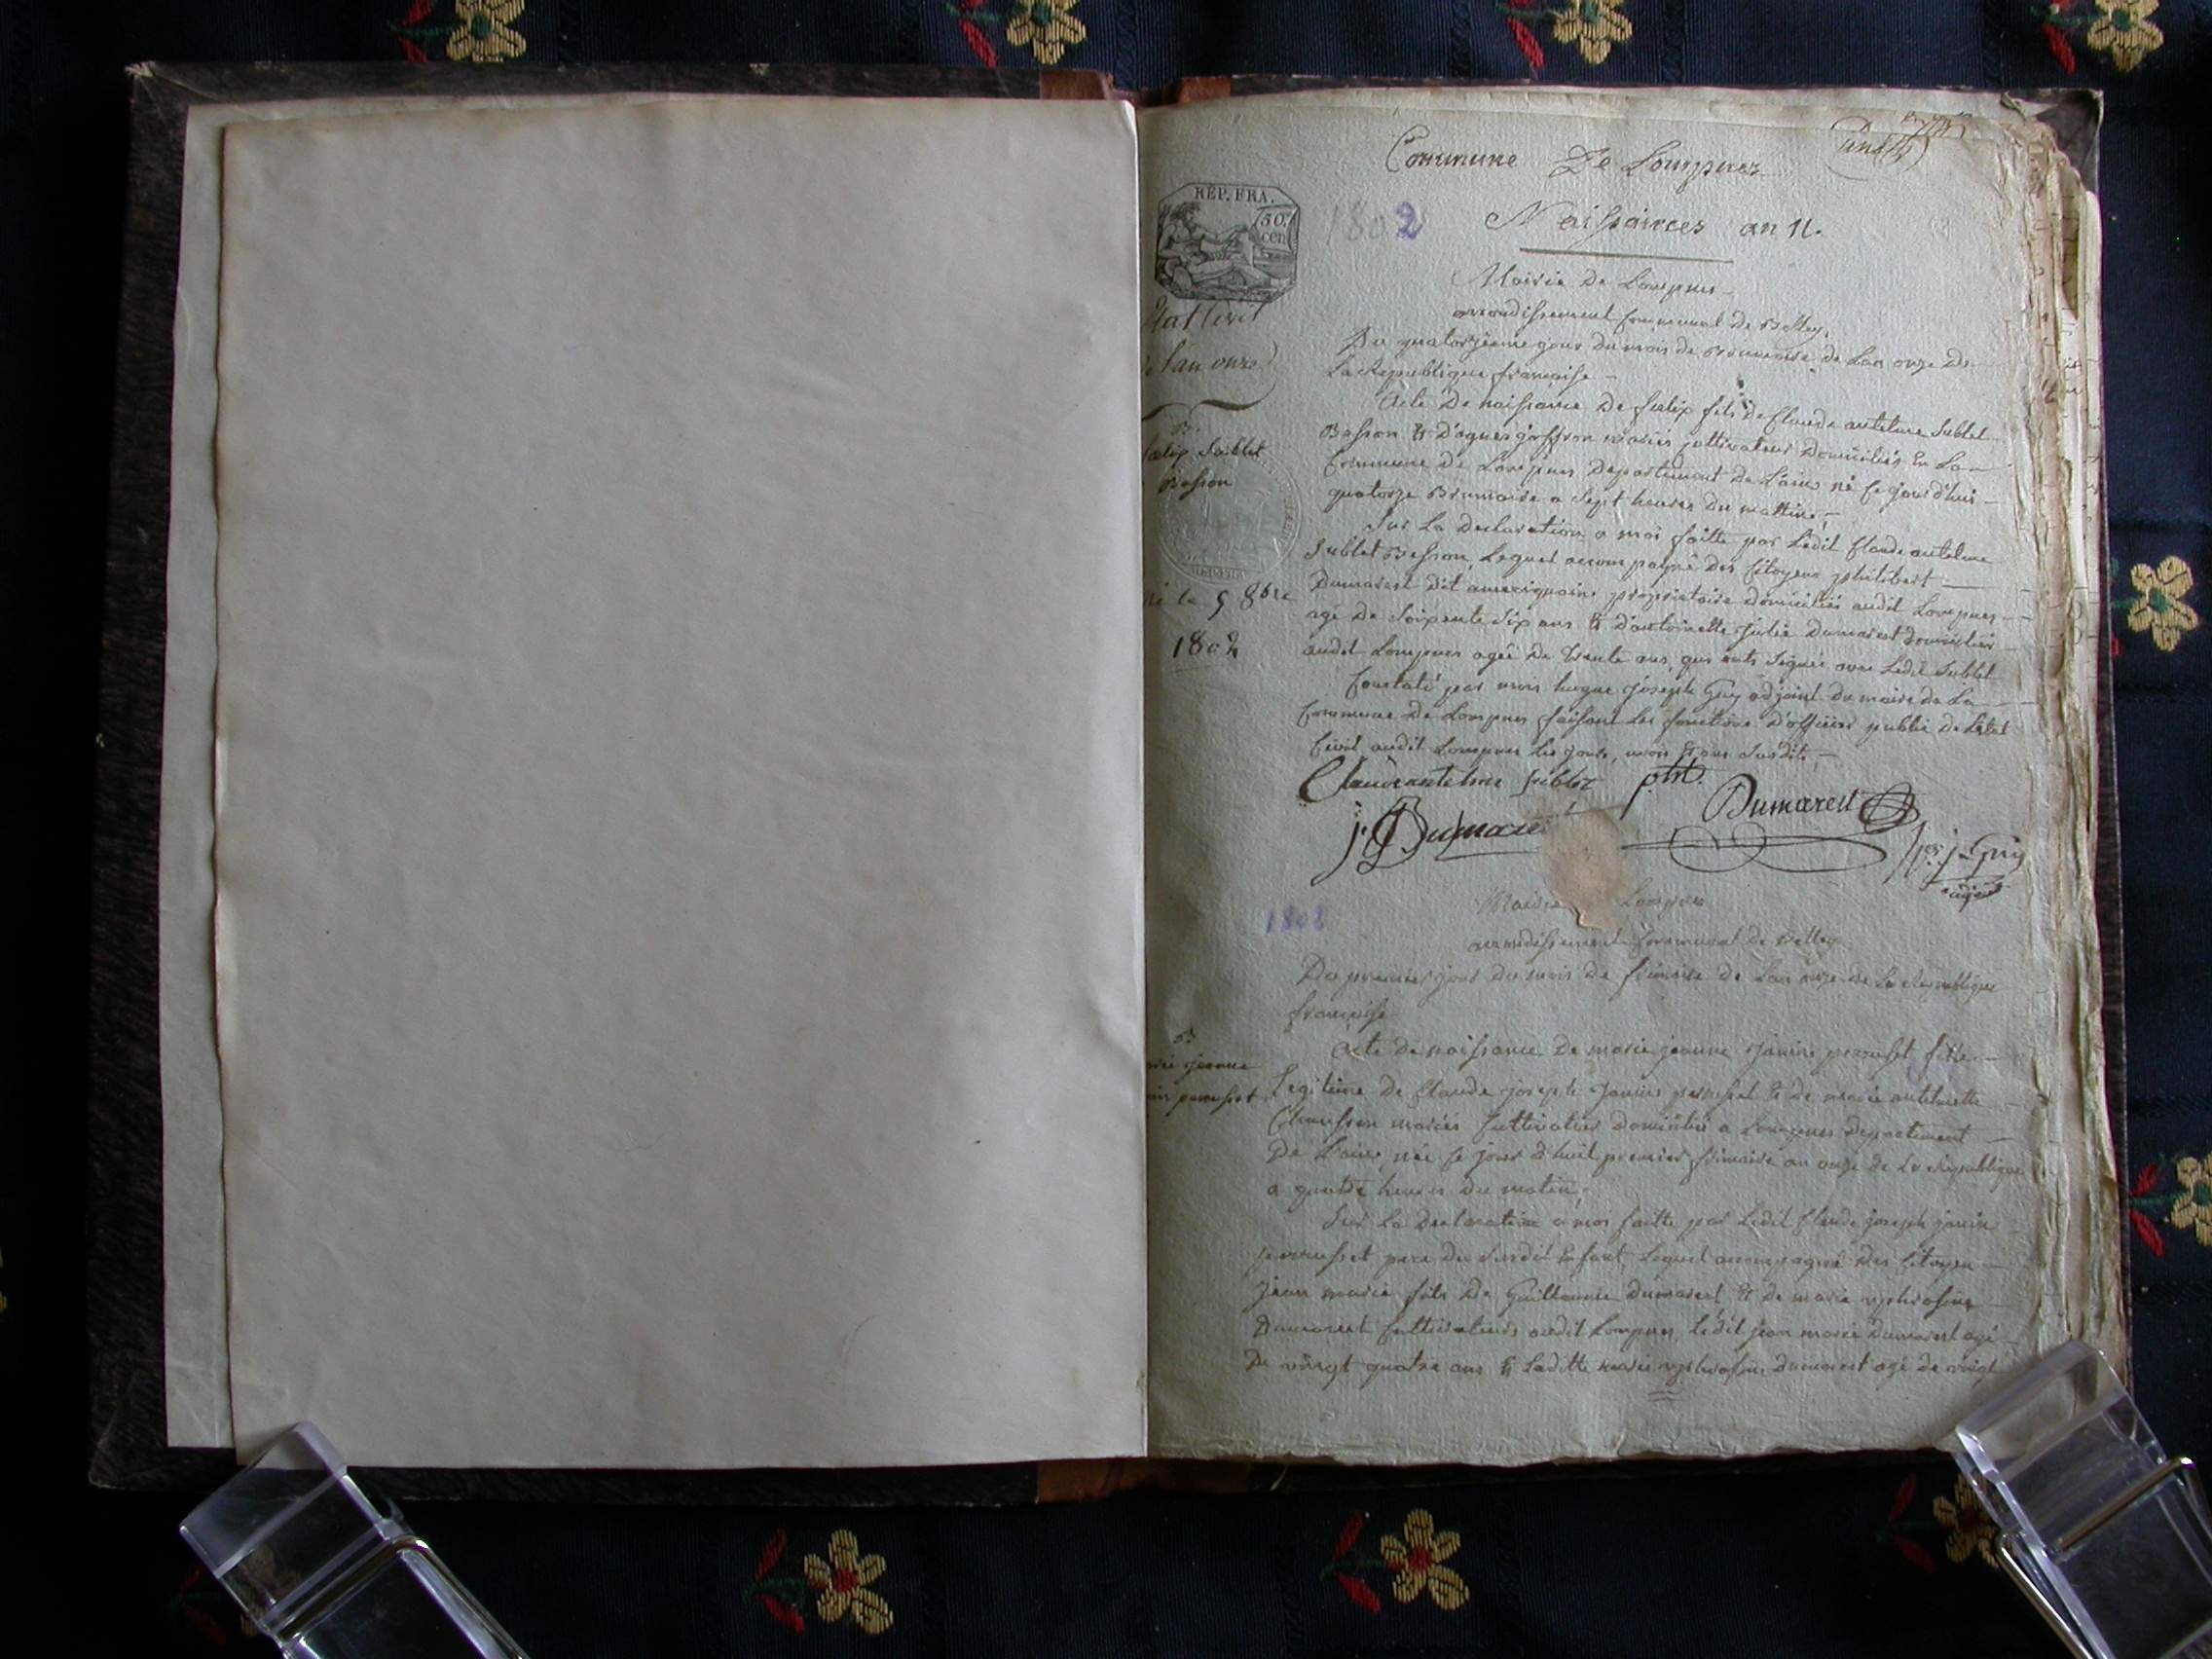 Commune De Lompnes
RÉP. FRA.
50
cen
1802
Naissances an 11.
Mairie de Lompnes
arrondissement Communal de Belley,
Etat Civil
Du quatorzieme jour du mois de Brumaire de Lan onze de
l'an onze
La Republique francaise
Acte De naissance De felix fils de Claude antelme Sublet
B.
felix Sublet
Besson
Besson & D'agnes joffron mariés cultivateur Domiciliés En La
Commune de Lompnes Departement De L'ain, né Ce jourd'hui
quatorze Brumaire a Sept heures du mattin,
Sur La Declaration a moi faitte par Ledit Claude antelme
Sublet Besson, Lequel accompagné Des Citoyens philibert
né le 5 8bre
1802
Dumarest Dit proprietaire domicilié audit Lompnes
agé De Soixante Six ans & d'antoinette julie Dumarest Domiciliée
audit Lompnes agée De trente ans, qui ont Signés avec Ledit Sublet
Constaté par moi hugue joseph Guy adjoint du maire de La
Commune De Lompnes faisant Les fonctions D'officier public De L'etat
Civil, audit Lompnes Les jours, mois & an Susdit,
Claude antelme Sublet pht.
Dumarest
j. Dumarest
hgs. j. Guy
adjoint
1802
Mairie Lompnes
arrondissement Communal de Belley
Du premier jour du mois de frimaire de Lan onze de La Republique
francaise
B
Acte de naissance De marie jeanne Janin perruset fille
jeanne
perruset
Legitime de Claude joseph Janin perruset & de marie antelmette
mariés Cultivateur Domiciliés a Lompnes departement
De L'ain, née Ce jour d'huit premier frimaire an onze de La Republique
a quatre heures du matin,
Sur La Declaration a moi faitte par Ledit Claude joseph janin
perruset pere du Susdit Enfant, Lequel accompagné Des Citoyen
Jean marie fils De Guillaume Dumarest & de marie
Dumarest Cultivateurs audit Lompnes, Ledit jean marie Dumarest agé
De vingt quatre ans & Laditte marie dumarest agé de vingt